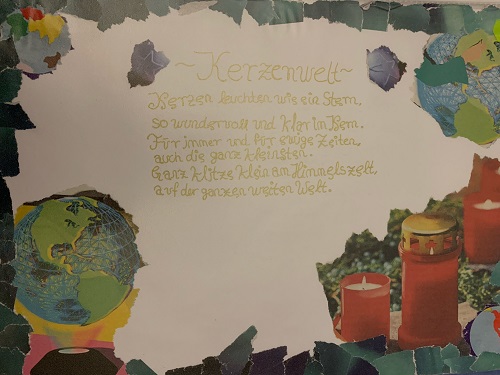 ~Kerzenwelt~
Kerzen leuchten wie ein Stern,
so wundervoll und klar im Kern.
Für immer und für ewige Zeiten,
auch die ganz kleinsten.
Ganz klitze klein am Himmelszelt,
auf der ganzen weiten Welt.